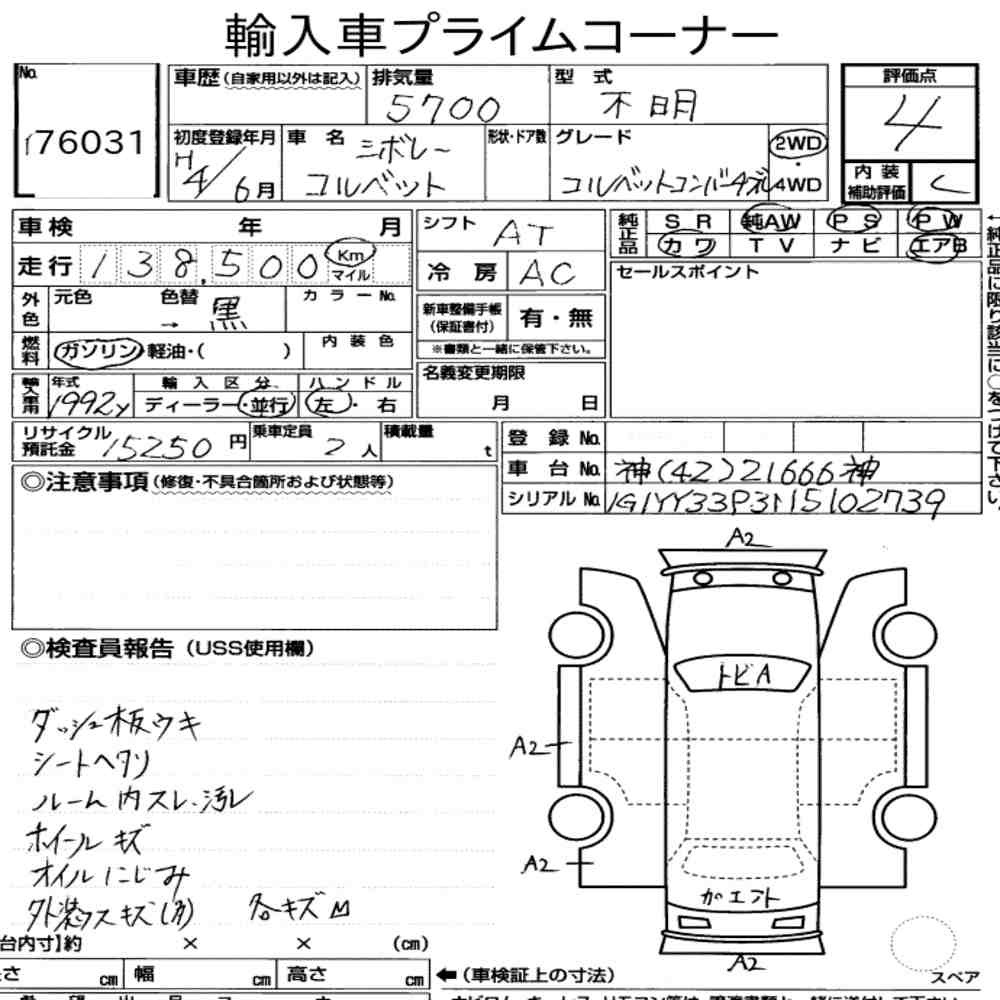 輸入車プライムコーナー
No.
76031
車歴(自家用以外は記入)
排気量
5700
型式
不明
評価点
4
初度登録年月
H4/6月
車名
シボレー
コルベット
形状・ドア数
グレード
コルベットコンバーチブル
2WD
・
4WD
内装
補助評価
C
車検 年 月
走行 138,500 Km
マイル
シフト
AT
冷房 AC
純正品
SR 純AW PS PW
カワ TV ナビ エアB
セールスポイント
外色
元色 色替
→ 黒
カラーNo.
新車整備手帳
(保証書付)
有・無
※書類と一緒に保管下さい。
燃料
ガソリン・軽油・( )
内装色
名義変更期限
月 日
年式
1992y
輸入区分
ディーラー・並行
ハンドル
左・右
リサイクル
預託金 15250 円
乗車定員
2人
積載量
t
登録No.
車台No. 神(42)21666神
シリアルNo. 1G1YY33P3N5102739
◎注意事項(修復・不具合箇所および状態等)
◎検査員報告(USS使用欄)
ダッシュ板ウキ
シートヘタリ
ルーム内スレ・汚レ
ホイールキズ
オイルにじみ
A2
トビA
A2
A2
A2
スペア
台内寸】約 × × (cm)
さ cm 幅 cm 高さ cm
←(車検証上の寸法)